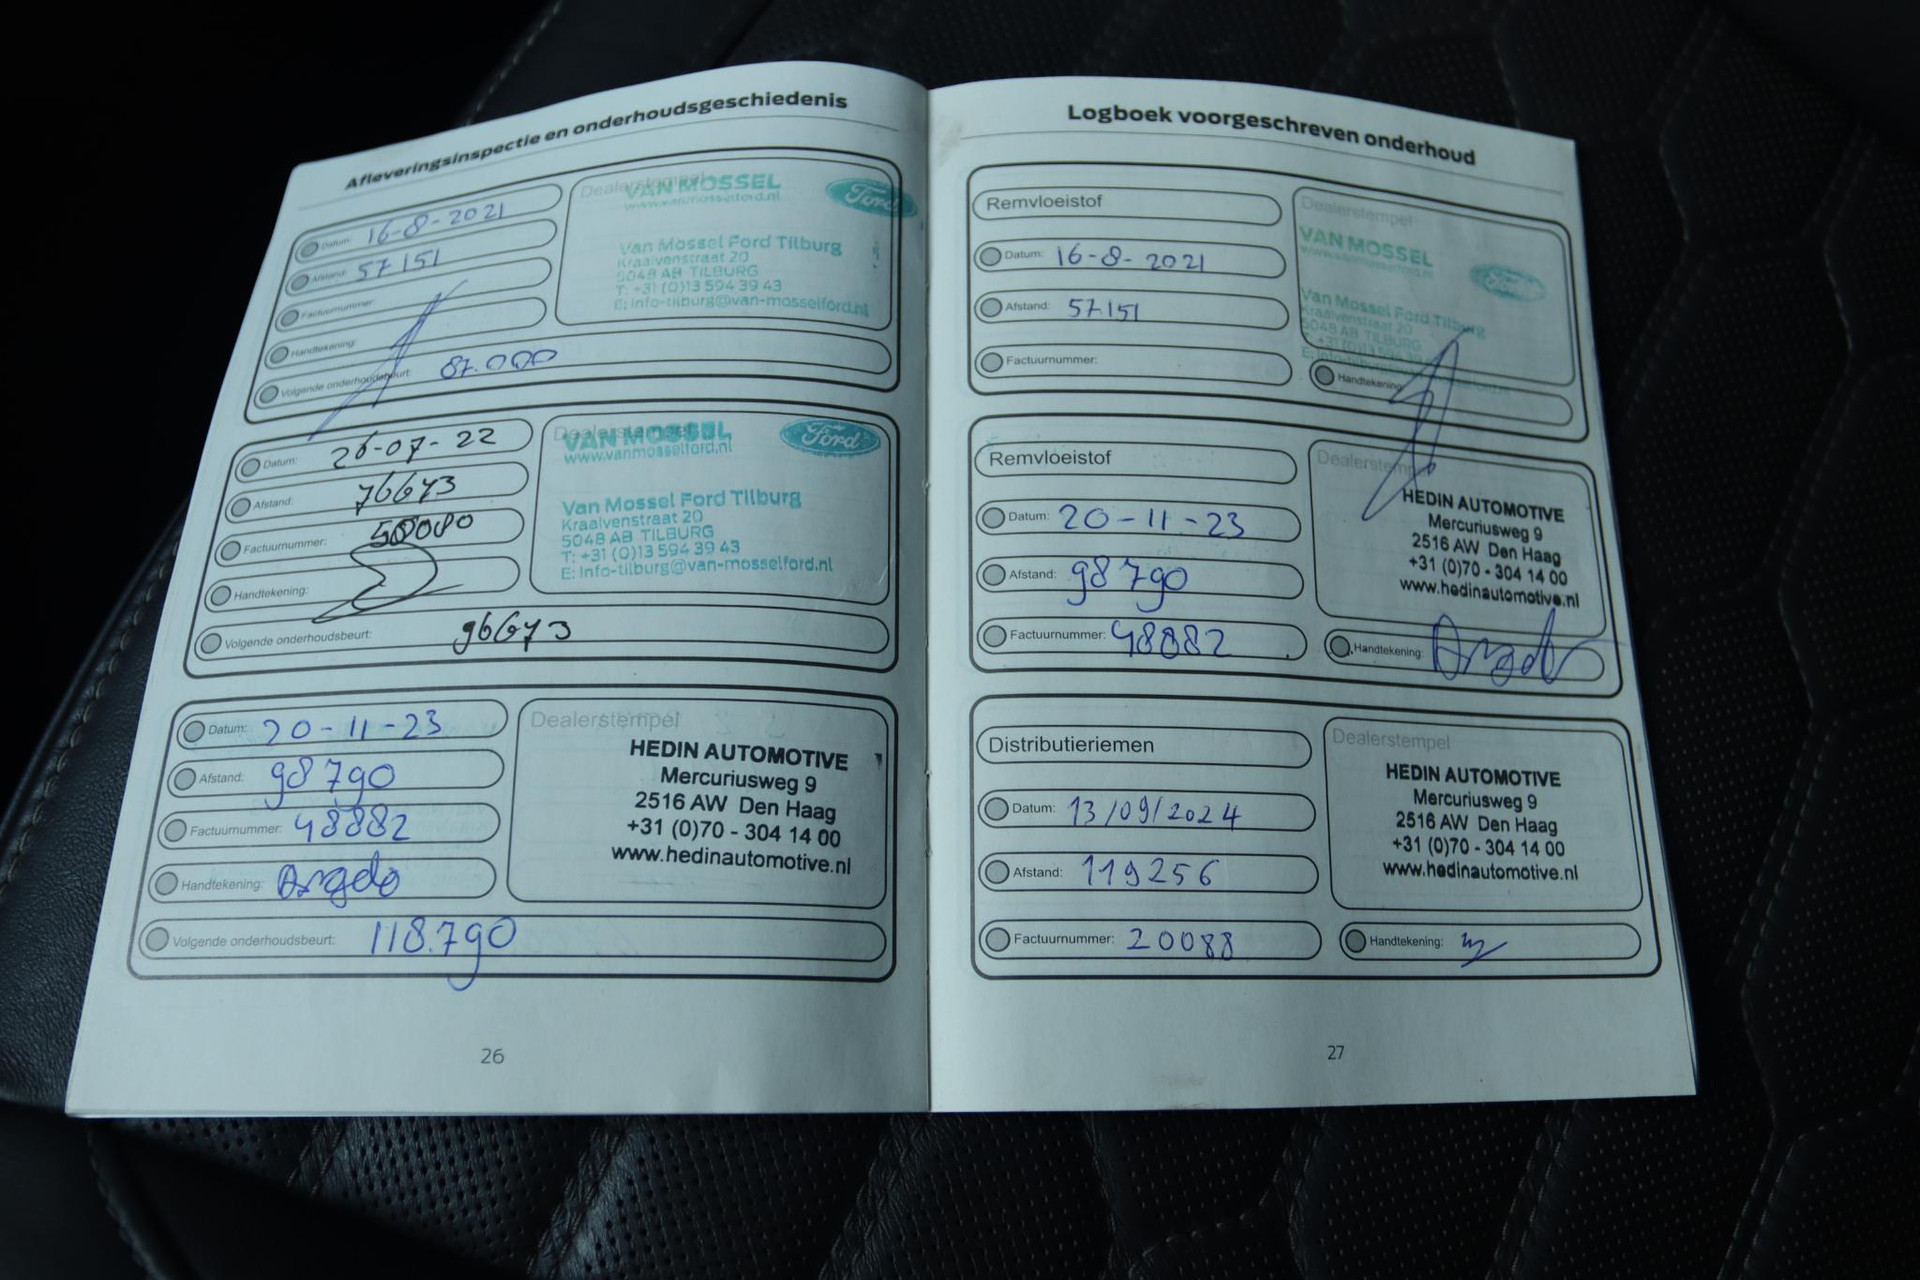 Afleveringsinspectie en onderhoudsgeschiedenis
Datum: 16-8-2021
Afstand: 57.151
Factuurnummer:
Handtekening:
Volgende onderhoudsbeurt: 87.000
Dealerstempel
VAN MOSSEL
www.vanmosselford.nl
Ford
Van Mossel Ford Tilburg
Kraaivenstraat 20
5048 AB TILBURG
T: +31 (0)13 594 39 43
E: Info-tilburg@van-mosselford.nl
Datum: 26-07-22
Afstand: 76673
Factuurnummer:
Handtekening:
Volgende onderhoudsbeurt: 96673
Dealerstempel
VAN MOSSEL
www.vanmosselford.nl
Ford
Van Mossel Ford Tilburg
Kraaivenstraat 20
5048 AB TILBURG
T: +31 (0)13 594 39 43
E: Info-tilburg@van-mosselford.nl
Datum: 20-11-23
Afstand: 98790
Factuurnummer: 48882
Handtekening:
Volgende onderhoudsbeurt: 118.790
Dealerstempel
HEDIN AUTOMOTIVE
Mercuriusweg 9
2516 AW Den Haag
+31 (0)70 - 304 14 00
www.hedinautomotive.nl
26
Logboek voorgeschreven onderhoud
Remvloeistof
Datum: 16-8-2021
Afstand: 57.151
Factuurnummer:
Dealerstempel
VAN MOSSEL
www.vanmosselford.nl
Ford
Van Mossel Ford Tilburg
Kraaivenstraat 20
5048 AB TILBURG
+31 (0)13 594 39
Handtekening:
Remvloeistof
Datum: 20-11-23
Afstand: 98790
Factuurnummer: 48882
Dealerstempel
HEDIN AUTOMOTIVE
Mercuriusweg 9
2516 AW Den Haag
+31 (0)70 - 304 14 00
www.hedinautomotive.nl
Handtekening:
Distributieriemen
Datum: 13/09/2024
Afstand: 119256
Factuurnummer: 20088
Dealerstempel
HEDIN AUTOMOTIVE
Mercuriusweg 9
2516 AW Den Haag
+31 (0)70 - 304 14 00
www.hedinautomotive.nl
Handtekening:
27